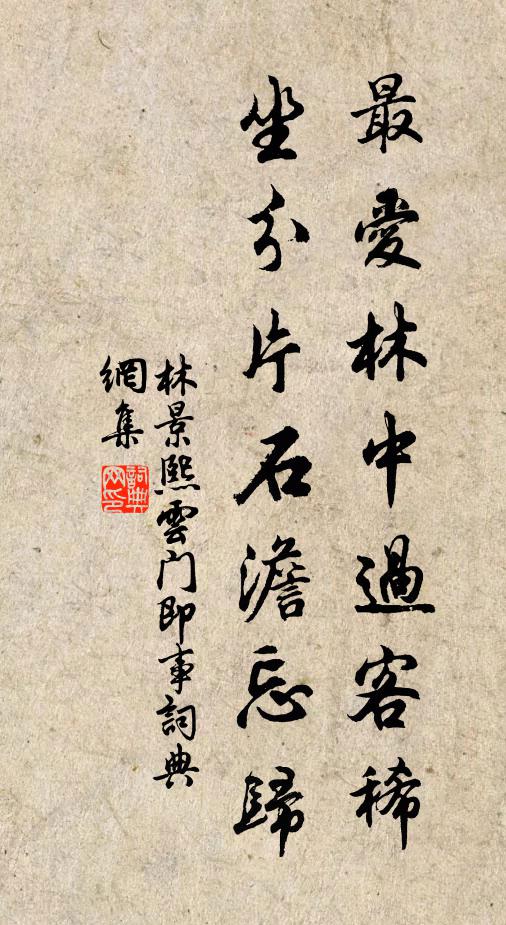 最愛林中過客稀
坐分片石澹忘歸
林景熙雲门即事詞典
網集
詞典
网印